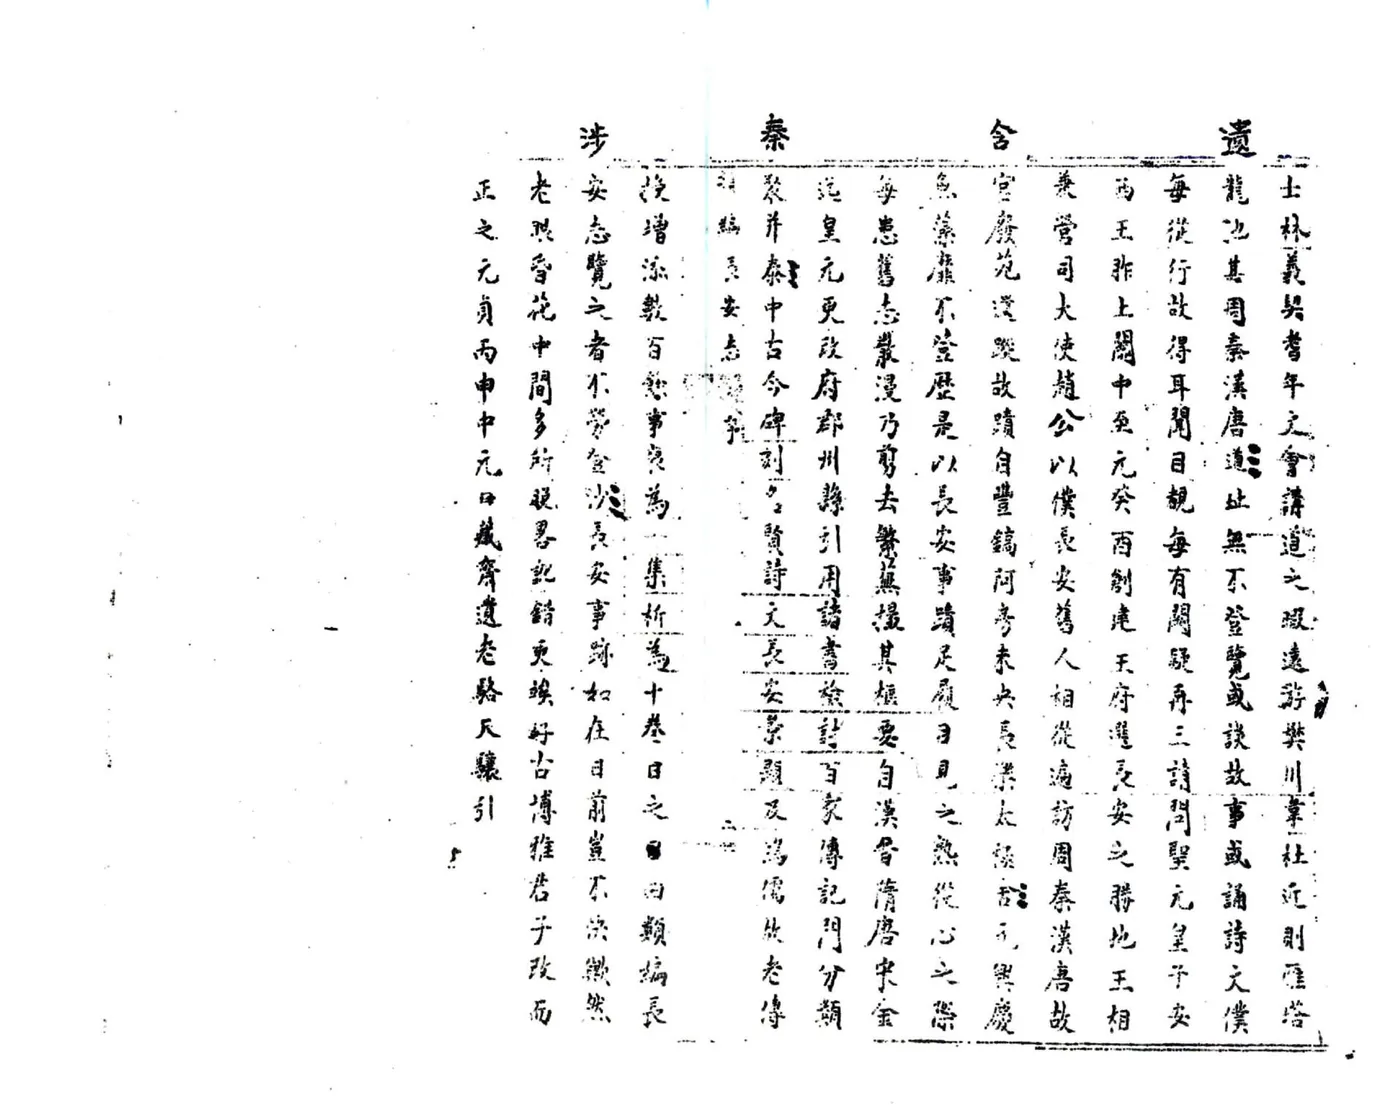 遺
含
秦
涉
士林義契耆年文會講道之暇遠游樊川韋杜近則雁塔
龍池其周秦漢唐道址無不登覽或談故事或誦詩文僕
每從行故得耳聞目覩每有闕疑再三請問聖元皇子安
西王胙土關中至元癸酉創建王府選長安之勝地王相
兼營司大使趙公以僕長安舊人相從遍訪周秦漢唐故
宮廢苑遺蹤故蹟自豐鎬阿房未央長樂太極舍元興慶
魚藻靡不登歷是以長安事蹟足履目見之熟從心之際
每患舊志散漫乃剪去繁蕪撮其樞要自漢晉隋唐宋金
迄皇元更改府郡州縣引用諸書檢討百家傳記門分類
聚并泰中古今碑刻名賢詩文長安景題及鴻儒故老傳
編長安志
授增添數百餘事裒為一集析為十卷目之曰類編長
安志覽之者不勞登沙長安事跡如在目前豈不快歟然
老眼昏花中間多所脫畧訛錯更竢好古博雅君子改而
正之元貞丙申中元日藏齋遺老駱天驤引